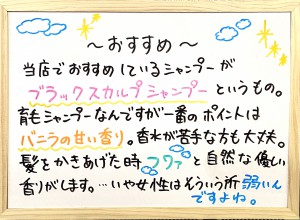 ～おすすめ～
当店でおすすめしているシャンプーが
ブラックスカルプシャンプーというもの。
育毛シャンプーなんですが一番のポイントは
バニラの甘い香り。香水が苦手な方も大丈夫。
髪をかきあげた時フワァと自然な優しい
香りがします。…いや女性はそういう所弱いん
ですよね。